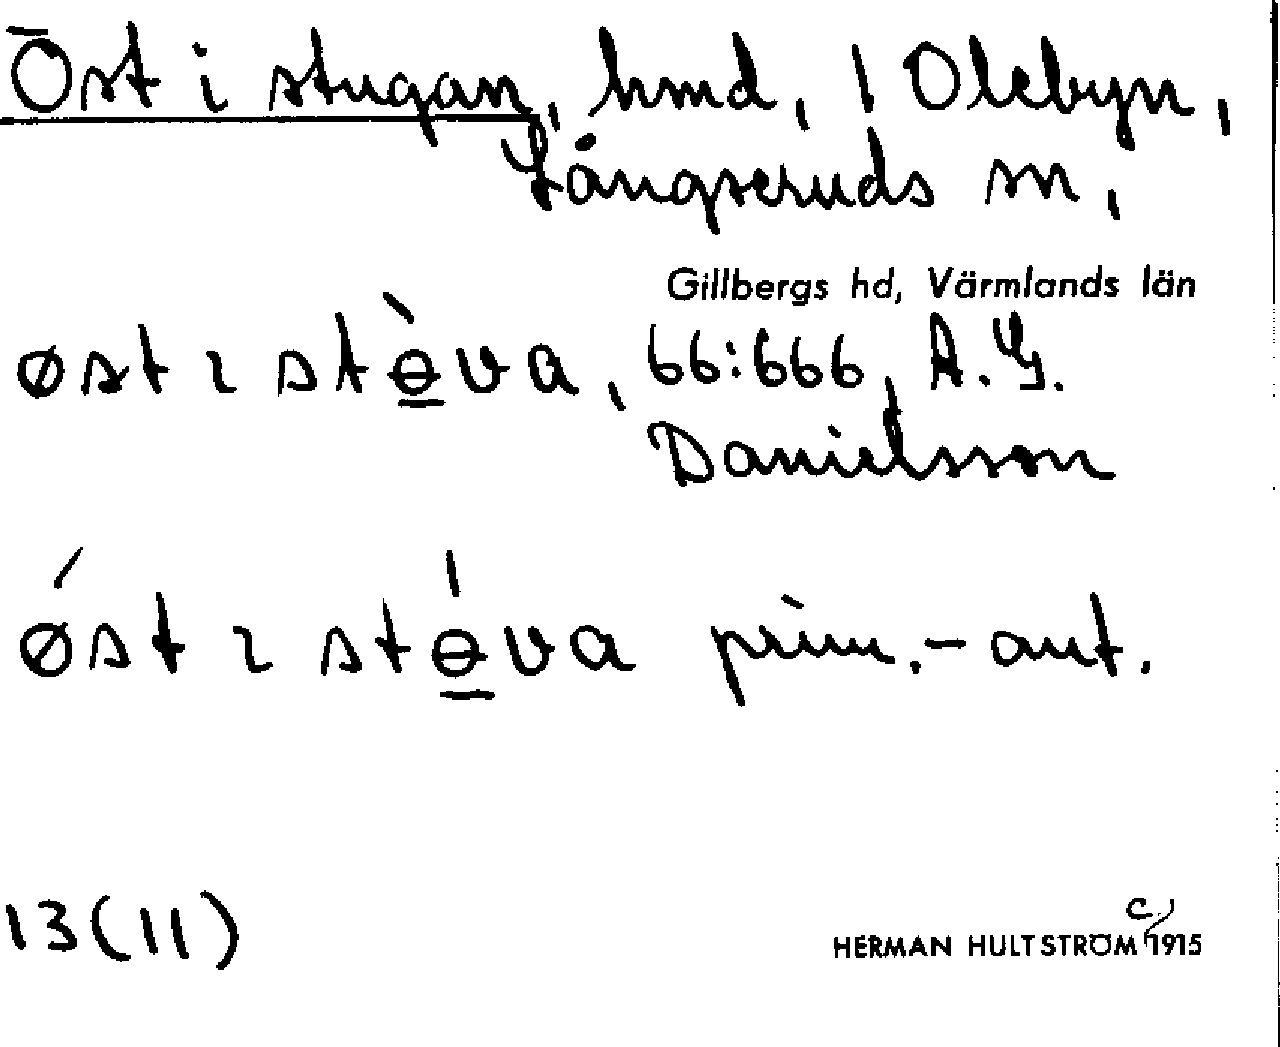 Öst i stugan, hmd, 1 Olebyn,
Långseruds sn,
Gillbergs hd, Värmlands län
øst ɩ stɵ̀va, 66:666, A. G.
Danielsson
ǿst ɩ stɵ́va prim.-ant.
13(11)
HERMAN HULTSTRÖM c. 1915